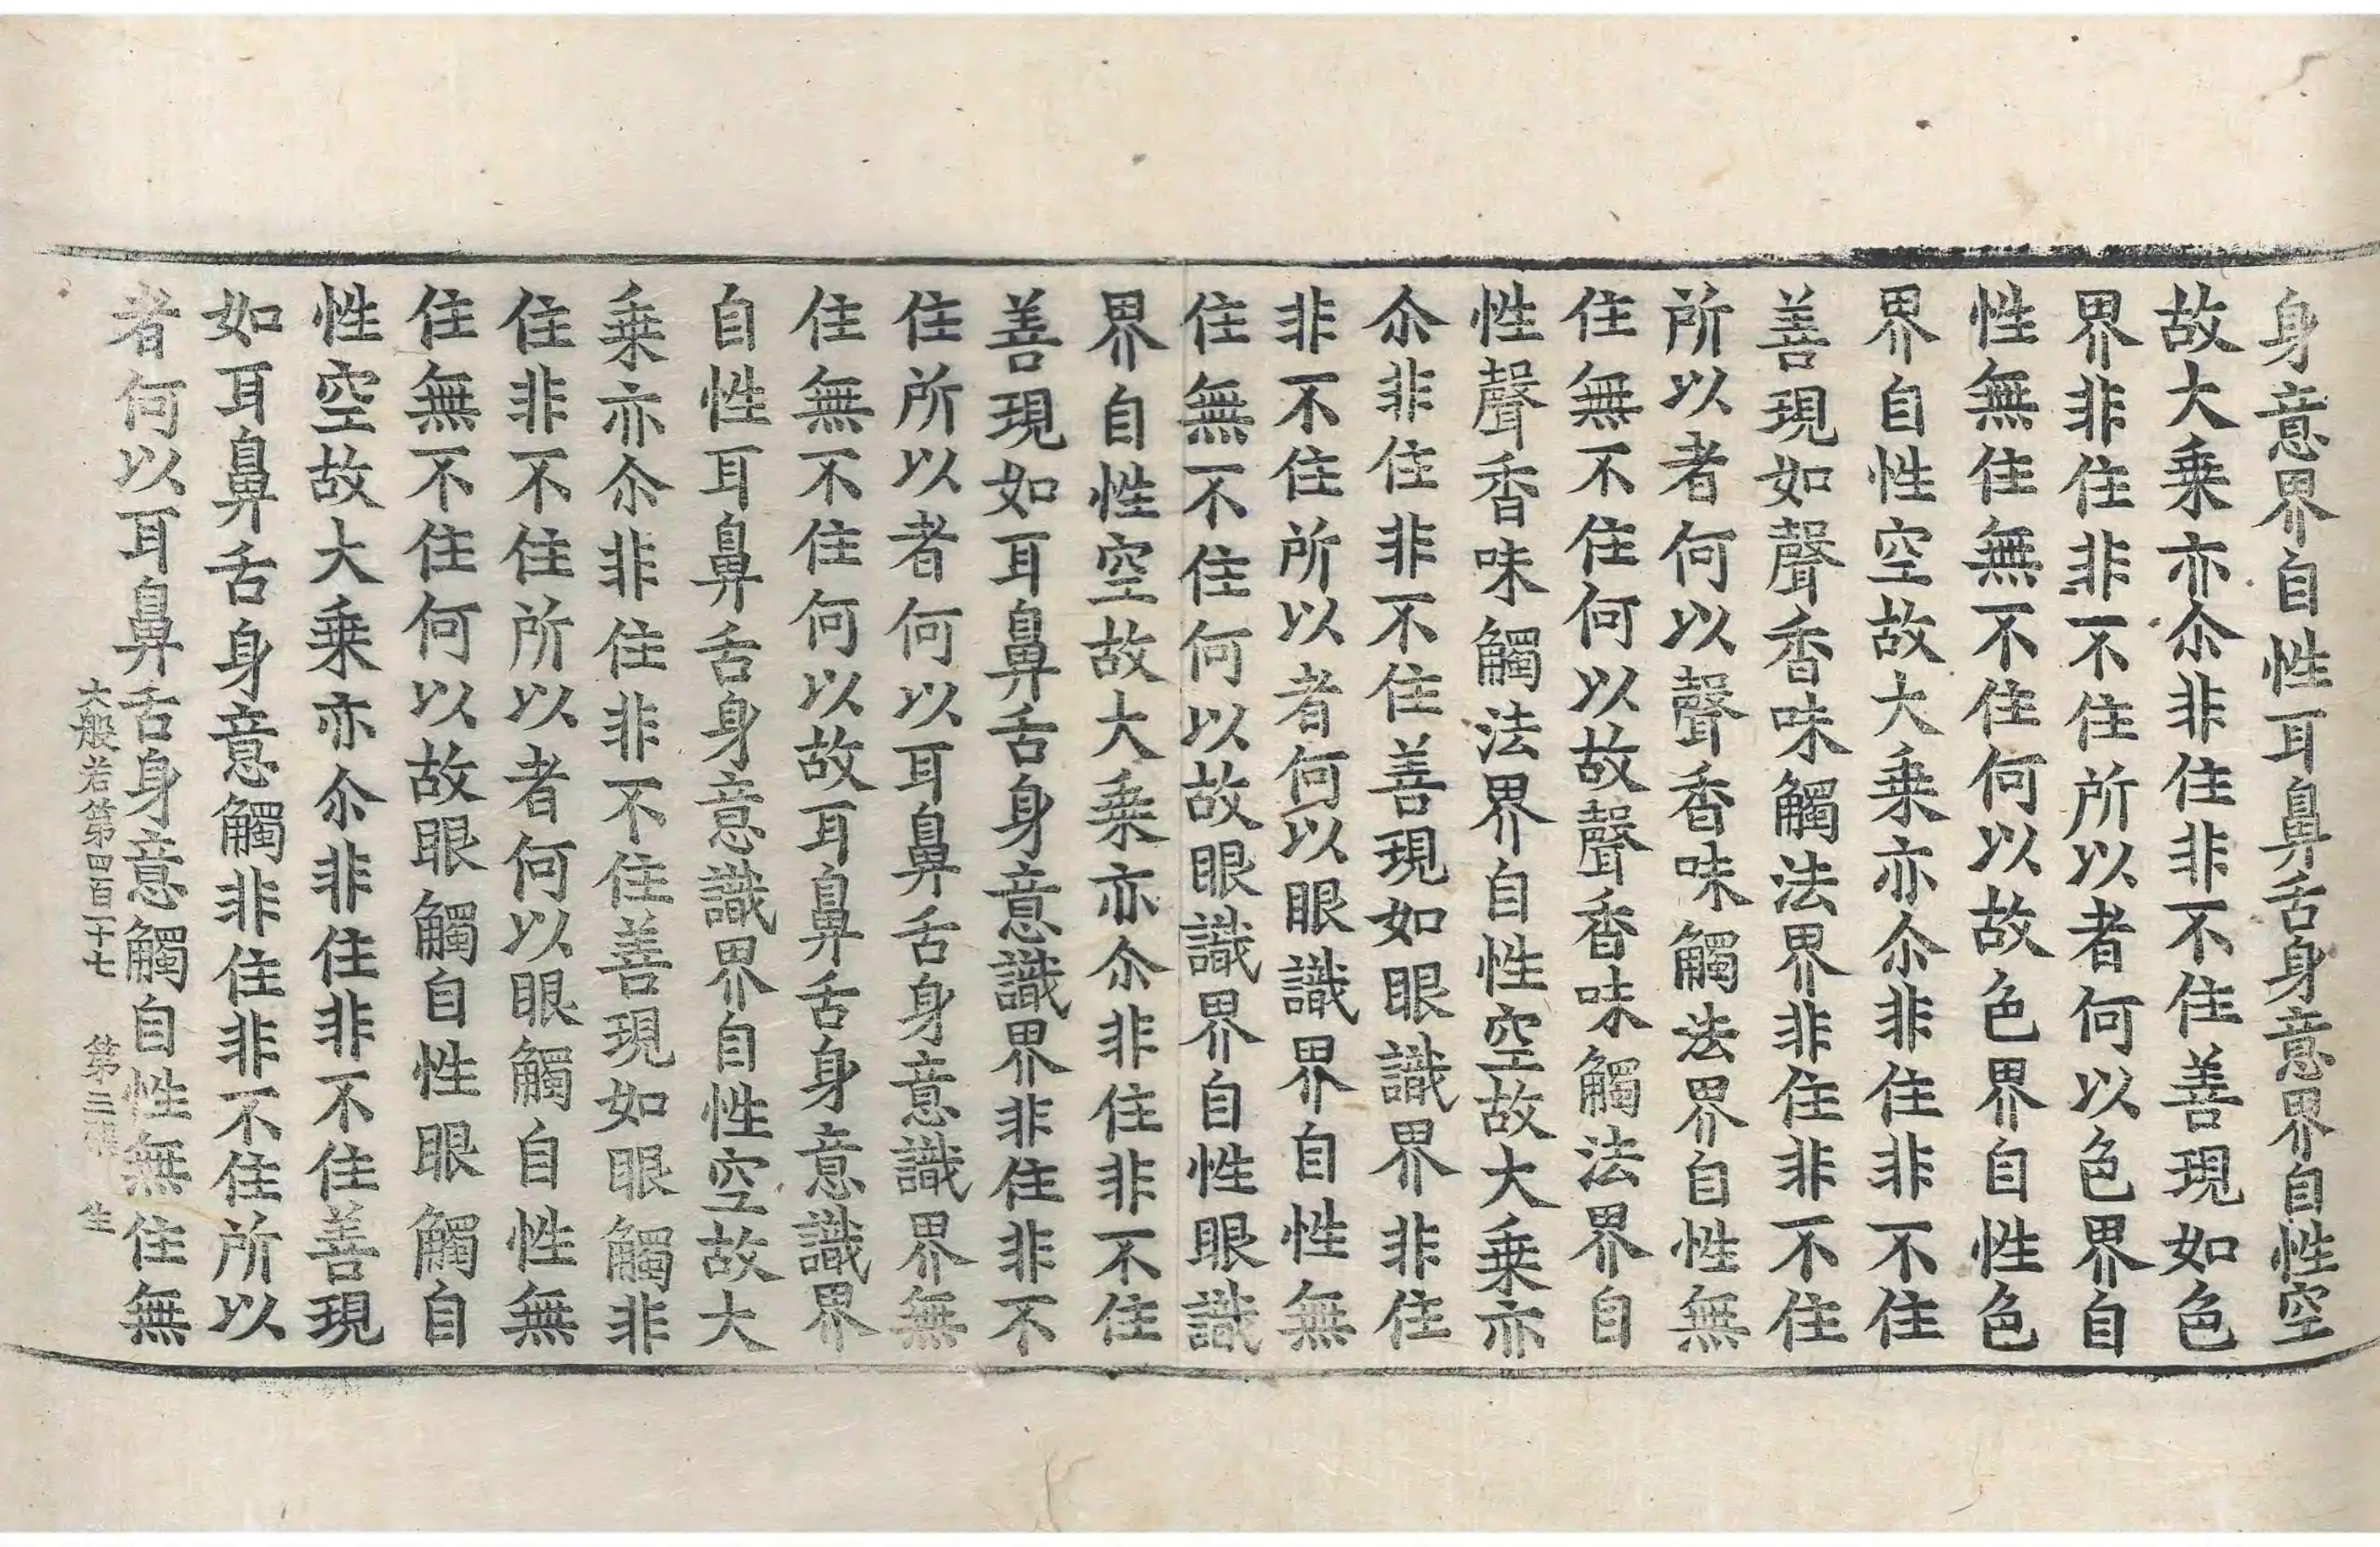 身意界自性耳鼻舌身意界自性空
故大乗亦尒非住非不住善現如色
界非住非不住所以者何以色界自
性無住無不住何以故色界自性色
界自性空故大乗亦尒非住非不住
善現如聲香味觸法界非住非不住
所以者何以聲香味觸法界自性無
住無不住何以故聲香味觸法界自
性聲香味觸法界自性空故大乗亦
尒非住非不住善現如眼識界非住
非不住所以者何以眼識界自性無
住無不住何以故眼識界自性眼識
界自性空故大乗亦尒非住非不住
善現如耳鼻舌身意識界非住非不
住所以者何以耳鼻舌身意識界無
住無不住何以故耳鼻舌身意識界
自性耳鼻舌身意識界自性空故大
乗亦尒非住非不住善現如眼觸非
住非不住所以者何以眼觸自性無
住無不住何以故眼觸自性眼觸自
性空故大乗亦尒非住非不住善現
如耳鼻舌身意觸非住非不住所以
者何以耳鼻舌身意觸自性無住無
大般若第四百一十七 第二張 生